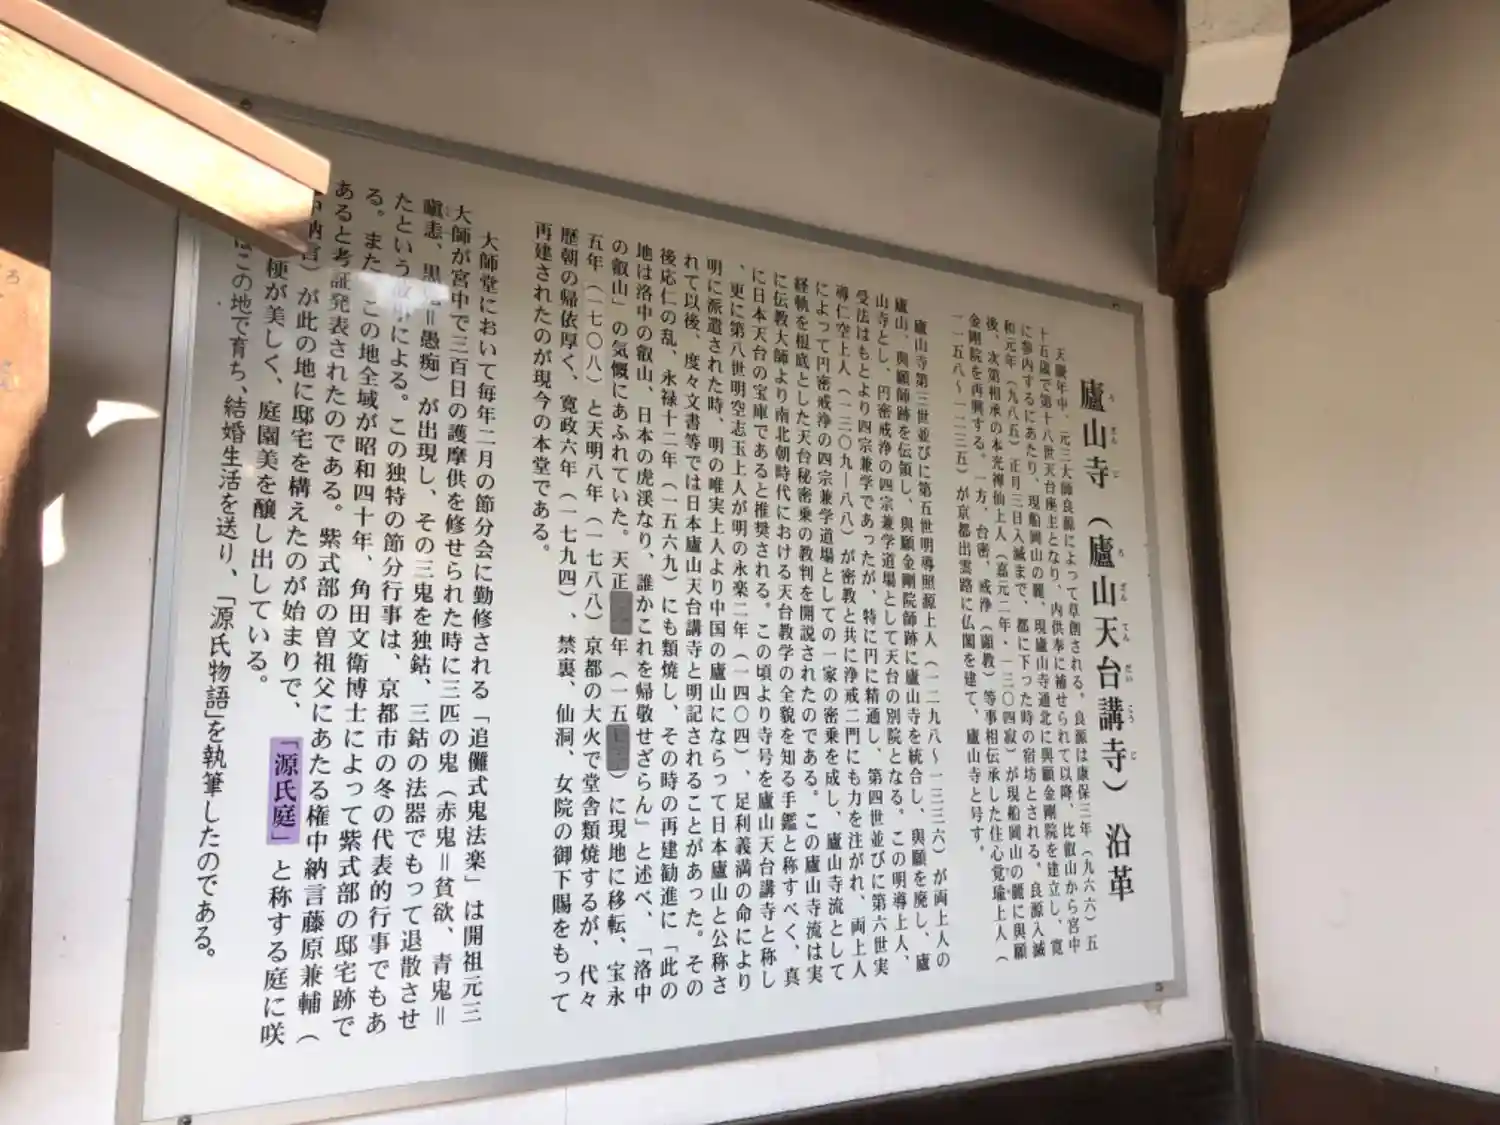 廬山寺（廬山天台講寺）沿革
天慶年中、元三大師良源によって草創される。良源は康保三年（九六六）五
十五歳で第十八世天台座主となり、内供奉に補せられて以降、比叡山から宮中
に参内するにあたり、現船岡山の麓、現廬山寺通北に與願金剛院を建立し、寛
和元年（九八五）正月三日入滅まで、都に下った時の宿坊とされる。良源入滅
後、次第相承の本光禅仙上人（嘉元二年・一三〇四寂）が現船岡山の麓に與願
金剛院を再興する。一方、台密、戒浄（顕教）等事相伝承した住心覚瑜上人（
一一五八〜一二三五）が京都出雲路に仏閣を建て、廬山寺と号す。
廬山寺第三世並びに第五世明導照源上人（一二九八〜一三三六）が両上人の
廬山、與願師跡を伝領し、與願金剛院師跡に廬山寺を統合し、與願を廃し、廬
山寺とし、円密戒浄の四宗兼学道場として天台の別院となる。この明導上人、
受法はもとより四宗兼学であったが、特に円に精通し、第四世並びに第六世実
導仁空上人（一三〇九―八八）が密教と共に浄戒二門にも力を注がれ、両上人
によって円密戒浄の四宗兼学道場としての一家の密乗を成し、廬山寺流として
経軌を根底とした天台秘密乗の教判を開説されたのである。この廬山寺流は実
に伝教大師より南北朝時代における天台教学の全貌を知る手鑑と称すべく、真
に日本天台の宝庫であると推奨される。この頃より寺号を廬山天台講寺と称し
、更に第八世明空志玉上人が明の永楽二年（一四〇四）、足利義満の命により
明に派遣された時、明の唯実上人より中国の廬山にならって日本廬山と公称さ
れて以後、度々文書等では日本廬山天台講寺と明記されることがあった。その
後応仁の乱、永禄十二年（一五六九）にも類焼し、その時の再建勧進に「此の
地は洛中の叡山、日本の虎渓なり、誰かこれを帰敬せざらん」と述べ、「洛中
の叡山」の気慨にあふれていた。天正年（一五）に現地に移転、宝永
五年（一七〇八）と天明八年（一七八八）京都の大火で堂舎類焼するが、代々
歴朝の帰依厚く、寛政六年（一七九四）、禁裏、仙洞、女院の御下賜をもって
再建されたのが現今の本堂である。
大師堂において毎年二月の節分会に勤修される「追儺式鬼法楽」は開祖元三
大師が宮中で三百日の護摩供を修せられた時に三匹の鬼（赤鬼＝貧欲、青鬼＝
瞋恚、黒＝愚痴）が出現し、その三鬼を独鈷、三鈷の法器でもって退散させ
たという による。この独特の節分行事は、京都市の冬の代表的行事でもあ
る。また、この地全域が昭和四十年、角田文衛博士によって紫式部の邸宅跡で
あると考証発表されたのである。紫式部の曽祖父にあたる権中納言藤原兼輔（
中納言）が此の地に邸宅を構えたのが始まりで、「源氏庭」と称する庭に咲
梗が美しく、庭園美を醸し出している。
はこの地で育ち、結婚生活を送り、「源氏物語」を執筆したのである。